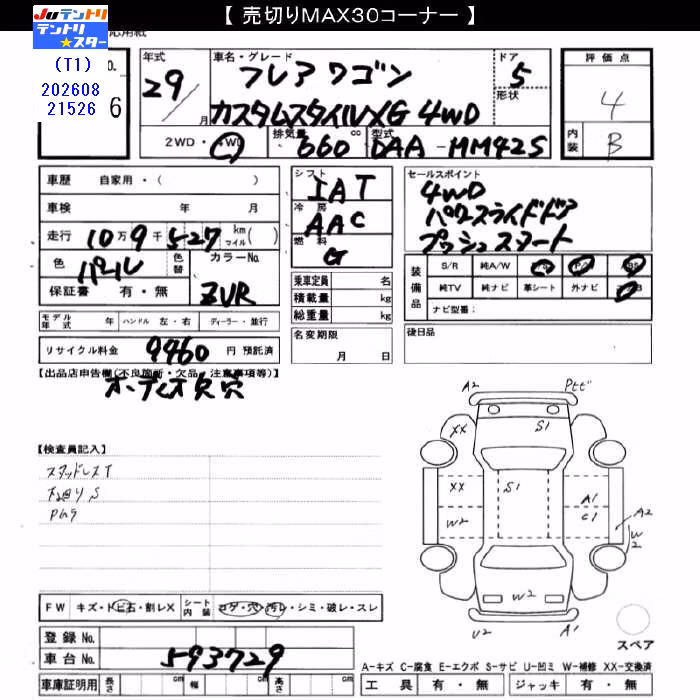 【 売切りMAX30コーナー 】
JUテントリ
テントリ★スター
応用紙
(T1)
202608
21526
o.
6
年式
29
月
車名・グレード
フレアワゴン
カスタムスタイルXG 4WD
ドア
5
形状
2WD・4WD
排気量
660
cc
型式
DAA-MM42S
評価点
4
内装
B
車歴 自家用・( )
車検 年 月
走行 10万9千527 km マイル( )
色 パール
色替
カラーNo.
ZVR
保証書 有・無
シフト
IAT
冷房
AAC
燃料
G
乗車定員 名
積載量 kg
総重量 kg
セールスポイント
4WD
パワースライドドア
プッシュスタート
装備品
S/R 純A/W
純TV 純ナビ 革シート 外ナビ
ナビ型番:
モデル年式 年 ハンドル 左・右 ディーラー・並行
名変期限
月 日
後日品
リサイクル料金 9460 円 預託済
【出品店申告欄(不良箇所・欠品・注意事項等)】
オーディオ欠穴
【検査員記入】
スタッドレスT
下廻りS
A2
XX
S1
XX
S1
A1
W2
C1
A2
W2
W2
U2
A1
スペア
FW キズ・トビ石・割レX
シート内装 コゲ・穴・汚レ・シミ・破レ・スレ
登録 No.
車台 No. 593729
A-キズ C-腐食 E-エクボ S-サビ U-凹ミ W-補修 XX-交換済
車庫証明用 長さ cm 幅 cm 高さ cm
工具 有・無 ジャッキ 有・無